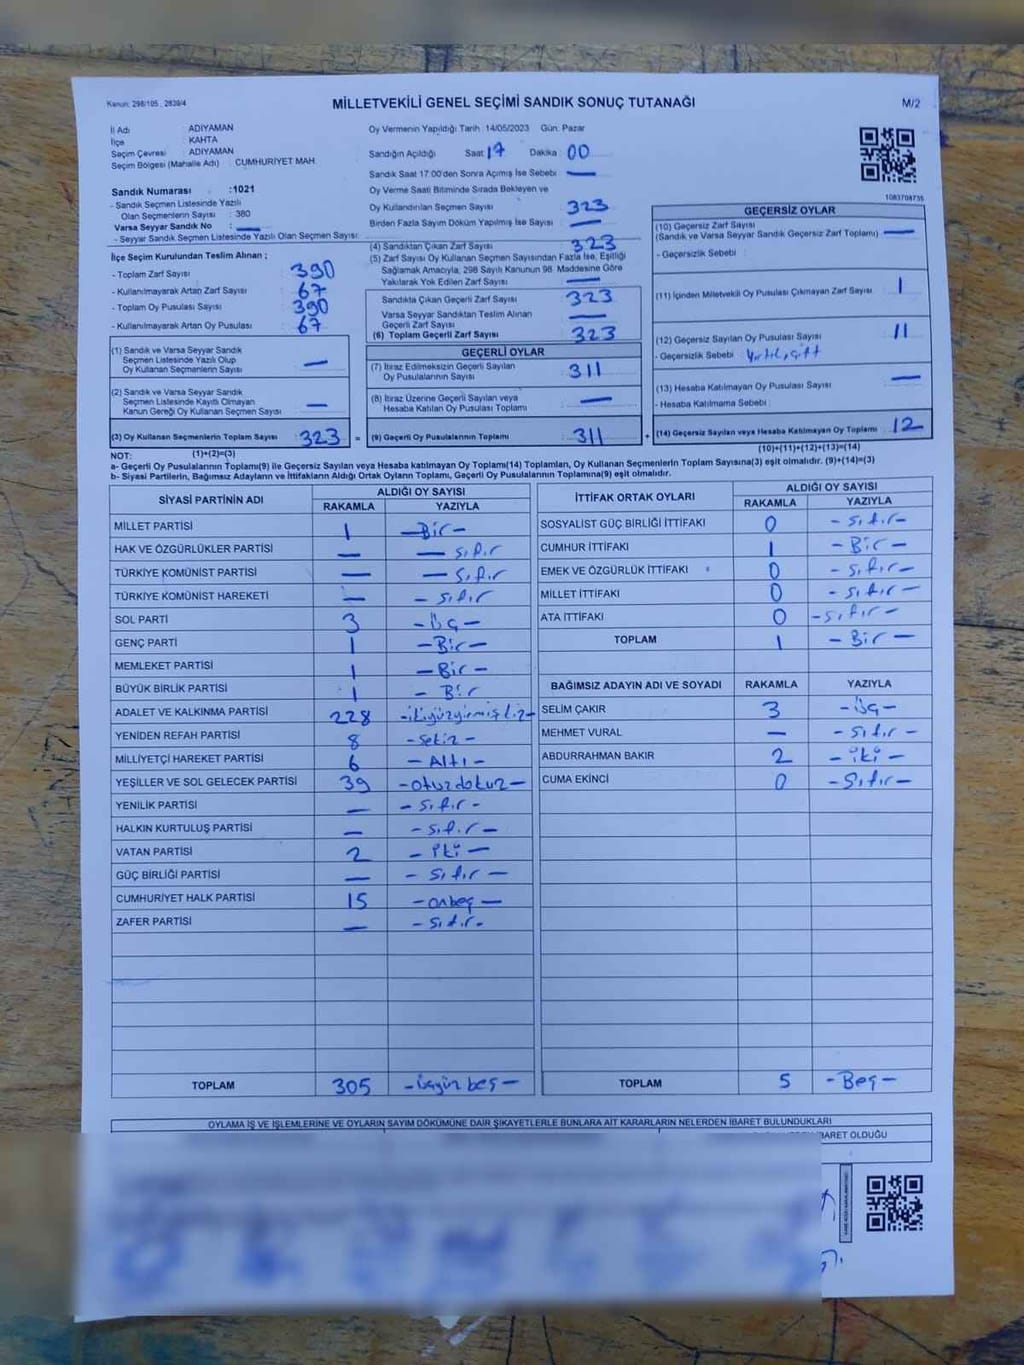 Kanun: 298/105 , 2839/4
MİLLETVEKİLİ GENEL SEÇİMİ SANDIK SONUÇ TUTANAĞI
M/2
İl Adı ADIYAMAN
İlçe KAHTA
Seçim Çevresi ADIYAMAN
Seçim Bölgesi (Mahalle Adı) : CUMHURİYET MAH.
Sandık Numarası :1021
- Sandık Seçmen Listesinde Yazılı
Olan Seçmenlerin Sayısı : 380
Varsa Seyyar Sandık No : —
- Seyyar Sandık Seçmen Listesinde Yazılı Olan Seçmen Sayısı:
Oy Vermenin Yapıldığı Tarih 14/05/2023 Gün: Pazar
Sandığın Açıldığı Saat 17 Dakika 00
Sandık Saat 17.00'den Sonra Açımış İse Sebebi —
Oy Verme Saati Bitiminde Sırada Bekleyen ve
Oy Kullandırılan Seçmen Sayısı 323
Birden Fazla Sayım Döküm Yapılmış İse Sayısı —
1083708735
İlçe Seçim Kurulundan Teslim Alınan ;
- Toplam Zarf Sayısı 390
- Kullanılmayarak Artan Zarf Sayısı 67
- Toplam Oy Pusulası Sayısı 390
- Kullanılmayarak Artan Oy Pusulası 67
(1) Sandık ve Varsa Seyyar Sandık
Seçmen Listesinde Yazılı Olup
Oy Kullanan Seçmenlerin Sayısı —
(2) Sandık ve Varsa Seyyar Sandık
Seçmen Listesinde Kayıtlı Olmayan
Kanun Gereği Oy Kullanan Seçmen Sayısı —
(3) Oy Kullanan Seçmenlerin Toplam Sayısı 323 =
(4) Sandıktan Çıkan Zarf Sayısı 323
(5) Zarf Sayısı Oy Kullanan Seçmen Sayısından Fazla İse, Eşitliği
Sağlamak Amacıyla, 298 Sayılı Kanunun 98. Maddesine Göre
Yakılarak Yok Edilen Zarf Sayısı —
Sandıkta Çıkan Geçerli Zarf Sayısı 323
Varsa Seyyar Sandıktan Teslim Alınan
Geçerli Zarf Sayısı —
(6) Toplam Geçerli Zarf Sayısı 323
GEÇERLİ OYLAR
(7) İtiraz Edilmeksizin Geçerli Sayılan
Oy Pusulalarının Sayısı 311
(8) İtiraz Üzerine Geçerli Sayılan veya
Hesaba Katılan Oy Pusulası Toplamı —
(9) Geçerli Oy Pusulalarının Toplamı 311 +
GEÇERSİZ OYLAR
(10) Geçersiz Zarf Sayısı
(Sandık ve Varsa Seyyar Sandık Geçersiz Zarf Toplamı) —
- Geçersizlik Sebebi :
(11) İçinden Milletvekil Oy Pusulası Çıkmayan Zarf Sayısı 1
(12) Geçersiz Sayılan Oy Pusulası Sayısı 11
- Geçersizlik Sebebi Yırtık, çift
(13) Hesaba Katılmayan Oy Pusulası Sayısı —
- Hesaba Katılmama Sebebi :
(14) Geçersiz Sayılan veya Hesaba Katılmayan Oy Toplamı 12
NOT: (1)+(2)=(3) (10)+(11)+(12)+(13)=(14)
a- Geçerli Oy Pusulalarının Toplamı(9) ile Geçersiz Sayılan veya Hesaba katılmayan Oy Toplamı(14) Toplamları, Oy Kullanan Seçmenlerin Toplam Sayısına(3) eşit olmalıdır. (9)+(14)=(3)
b- Siyasi Partilerin, Bağımsız Adayların ve İttifakların Aldığı Ortak Oyların Toplamı, Geçerli Oy Pusulalarının Toplamına(9) eşit olmalıdır.
SİYASİ PARTİNİN ADI ALDIĞI OY SAYISI
RAKAMLA YAZIYLA
MİLLET PARTİSİ 1 -Bir-
HAK VE ÖZGÜRLÜKLER PARTİSİ — — sıfır
TÜRKİYE KOMÜNİST PARTİSİ — — sıfır
TÜRKİYE KOMÜNİST HAREKETİ — - sıfır
SOL PARTİ 3 -Üç-
GENÇ PARTİ 1 -Bir-
MEMLEKET PARTİSİ 1 -Bir-
BÜYÜK BİRLİK PARTİSİ 1 - Bir
ADALET VE KALKINMA PARTİSİ 228 -ikiyüzyirmisekiz-
YENİDEN REFAH PARTİSİ 8 -sekiz-
MİLLİYETÇİ HAREKET PARTİSİ 6 - Altı -
YEŞİLLER VE SOL GELECEK PARTİSİ 39 -otuzdokuz-
YENİLİK PARTİSİ — - sıfır -
HALKIN KURTULUŞ PARTİSİ — - sıfır -
VATAN PARTİSİ 2 - iki -
GÜÇ BİRLİĞİ PARTİSİ — - sıfır -
CUMHURİYET HALK PARTİSİ 15 -onbeş-
ZAFER PARTİSİ — - sıfır-
TOPLAM 305 -üçyüz beş-
İTTİFAK ORTAK OYLARI ALDIĞI OY SAYISI
RAKAMLA YAZIYLA
SOSYALİST GÜÇ BİRLİĞİ İTTİFAKI 0 - sıfır-
CUMHUR İTTİFAKI 1 - Bir -
EMEK VE ÖZGÜRLÜK İTTİFAKI 0 - sıfır -
MİLLET İTTİFAKI 0 - sıfır -
ATA İTTİFAKI 0 -sıfır -
TOPLAM 1 - Bir -
BAĞIMSIZ ADAYIN ADI VE SOYADI RAKAMLA YAZIYLA
SELİM ÇAKIR 3 -Üç-
MEHMET VURAL — - sıfır -
ABDURRAHMAN BAKIR 2 - iki -
CUMA EKİNCİ 0 - sıfır -
TOPLAM 5 -Beş-
OYLAMA İŞ VE İŞLEMLERİNE VE OYLARIN SAYIM DÖKÜMÜNE DAİR ŞİKAYETLERLE BUNLARA AİT KARARLARIN NELERDEN İBARET BULUNDUKLARI
BARET OLDUĞU